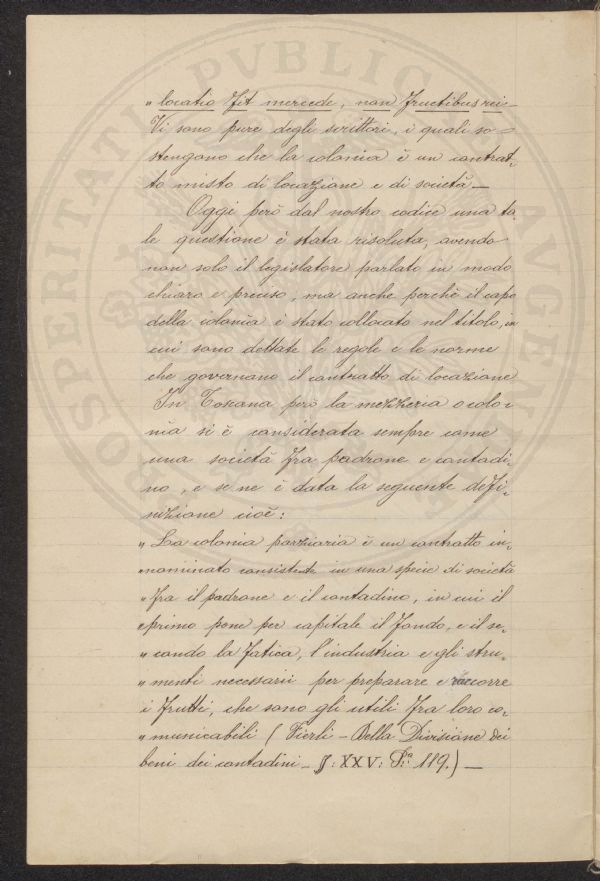 „ locatio fit mercede, non fructibus rei –
Vi sono pure degli scrittori, i quali so=
stengono che la colonia è un contrat-
to misto di locazione e di società –
Oggi però dal nostro codice una ta-
le questione è stata risoluta, avendo
non solo il legislatore parlato in modo
chiaro e preciso, ma anche perchè il capo
della colonìa è stato collocato nel titolo, in
cui sono dettate le regole e le norme
che governano il contratto di locazione
In Toscana però la mezzeria o colo-
nìa si è considerata sempre come
una società fra padrone e contadi-
no, e se ne è data la seguente defi-
nizione cioè:
„ La colonia parziaria è un contratto in-
„ nominato consistente in una specie di società
„ fra il padrone e il contadino, in cui il
„ primo pone per capitale il fondo, e il se-
„ condo la fatica, l'industria e gli stru-
„ menti necessarii per preparare e raccorre
i frutti, che sono gli utili fra loro co-
„ municabili (Fierli – Della Divisione dei
beni dei contadini – § : XXV : P:ª 119.) –
PROSPERITATI PVBLICAE AVGENDAE